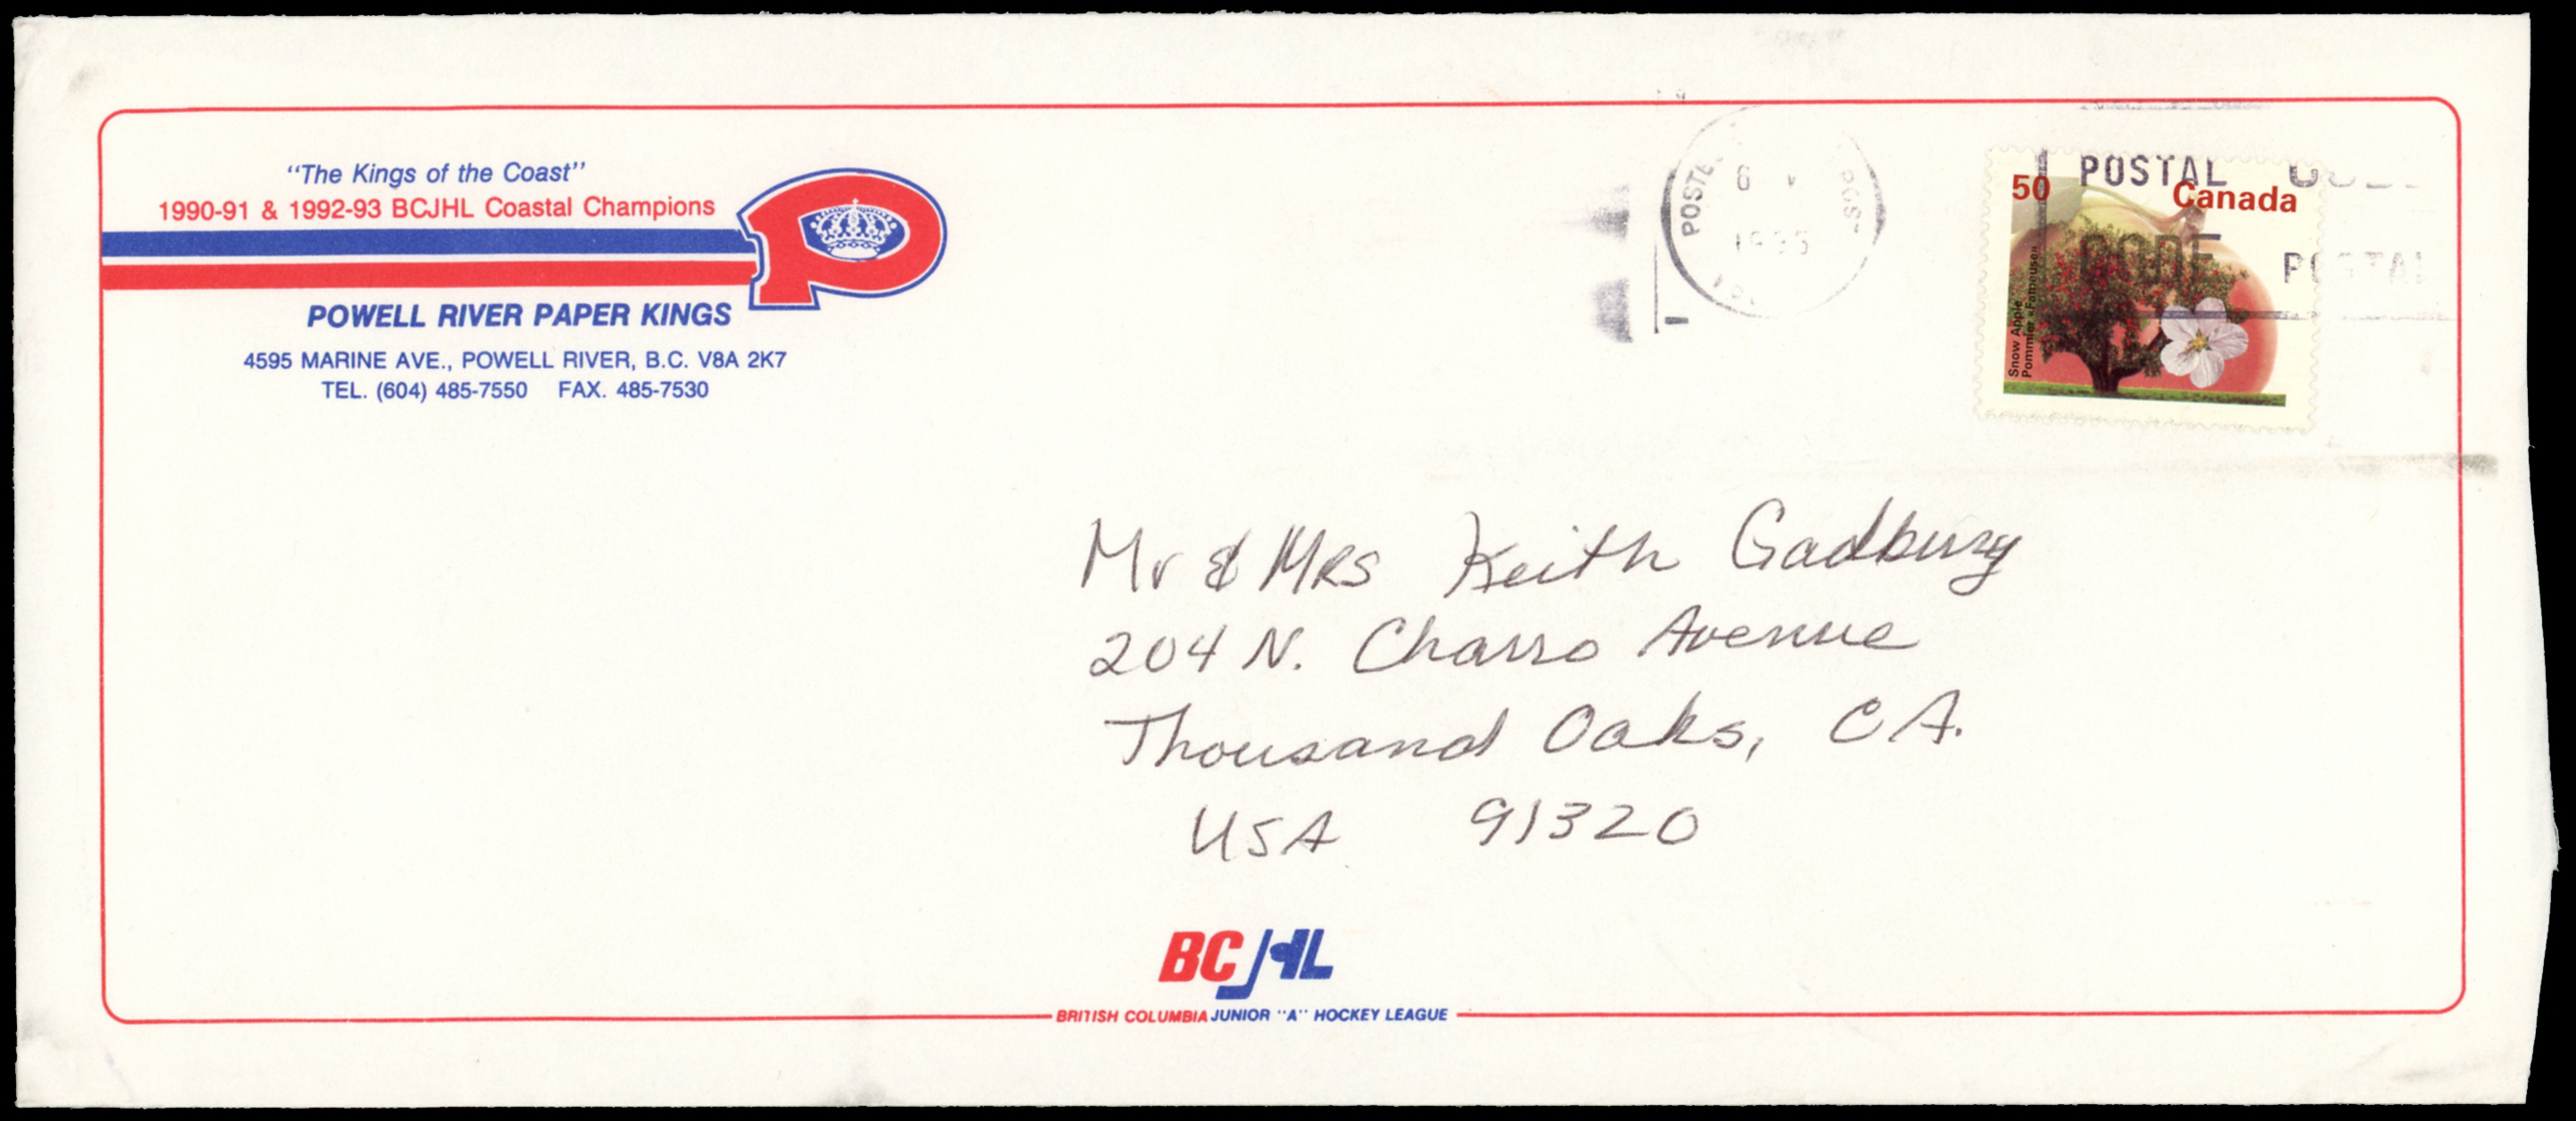 "The Kings of the Coast"
1990-91 & 1992-93 BCJHL Coastal Champions
POWELL RIVER PAPER KINGS
4595 MARINE AVE., POWELL RIVER, B.C. V8A 2K7
TEL. (604) 485-7550 FAX. 485-7530
1995
POSTAL
CODE
POSTAL
50
Canada
Snow Apple
Pommier «Fameuse»
Mr & MRS Keith Gadbury
204 N. Charro Avenue
Thousand Oaks, CA.
USA 91320
BCJHL
BRITISH COLUMBIA JUNIOR "A" HOCKEY LEAGUE